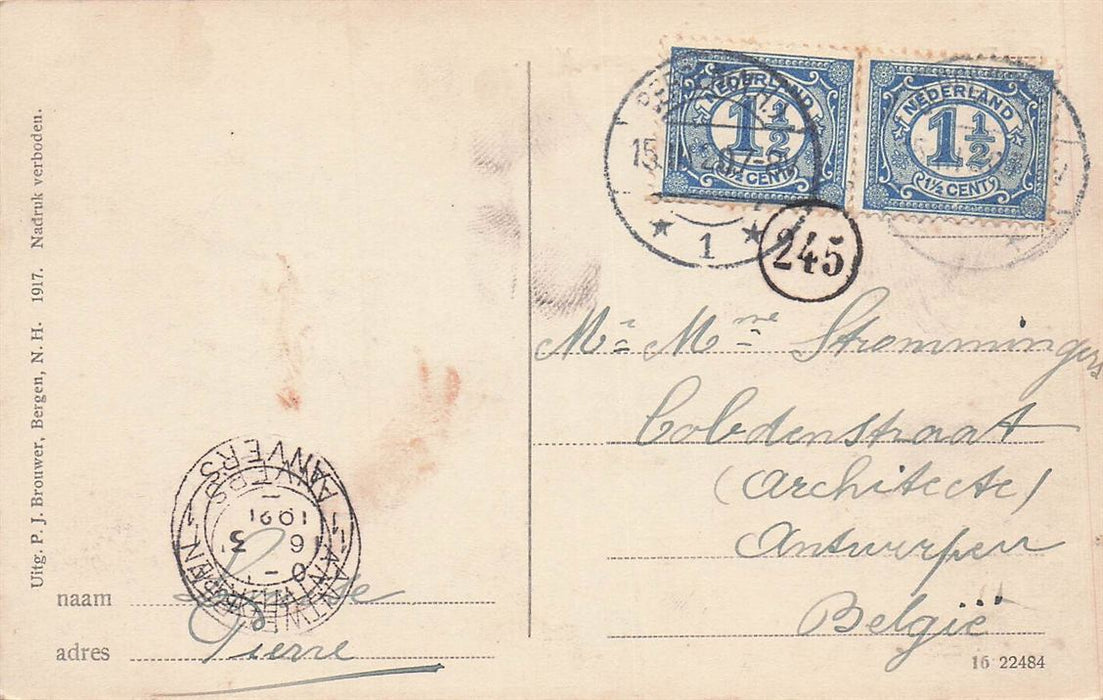 Uitg. P. J. Brouwer, Bergen, N. H. 1917. Nadruk verboden.
NEDERLAND
1½
1½ CENT
NEDERLAND
1½
1½ CENT
1
245
Mr Mme Strommingers
Cobdenstraat
(Architecte)
Antwerpen
België
ANVERS
naam Louise
adres Pierre
16 22484